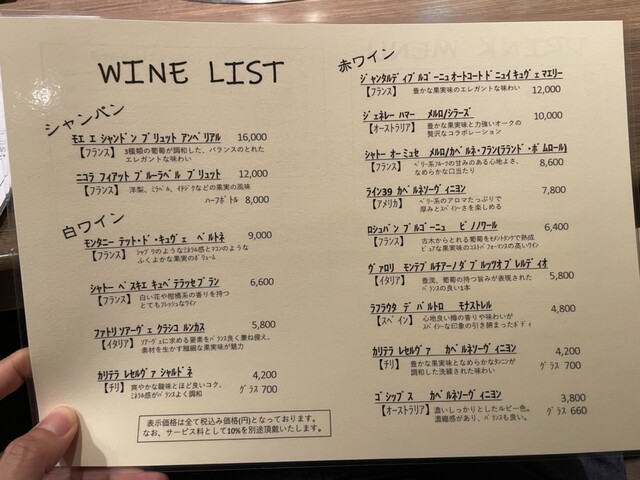 WINE LIST
シャンパン
モエ エ シャンドン ブリュット アンペリアル 16,000
【フランス】 3種類の葡萄が調和した、バランスのとれた
エレガントな味わい
ニコラ フィアット ブルーラベル ブリュット 12,000
【フランス】 洋梨、ミラベル、イチジクなどの果実の風味
ハーフボトル 8,000
白ワイン
モンタニー テット・ド・キュヴェ ベルトネ 9,000
【フランス】 シャブリのようなミネラル感とマコンのような
ふくよかな果実のボリューム
シャトー ベスキエ キュベ テラッセ ブラン 6,600
【フランス】 白い花や柑橘系の香りを持つ
とてもフレッシュなワイン
ファトリ ソアーヴェ クラシコ ルンカス 5,800
【イタリア】 ソアーヴェに求める要素をバランス良く兼ね備え、
素材を生かす繊細な果実味が魅力
カリテラ レセルヴァ シャルドネ 4,200
【チリ】 爽やかな酸味とほど良いコク、 グラス 700
ミネラル感がバランスよく調和
表示価格は全て税込み価格(円)となっております。
なお、サービス料として10%を別途頂戴いたします。
赤ワイン
ジャンタルディ ブルゴーニュ オートコート ド ニュイ キュヴェ マエリー
【フランス】 豊かな果実味のエレガントな味わい 12,000
ジェネレー ハマー メルロ/シラーズ 10,000
【オーストラリア】 豊かな果実味と力強いオークの
贅沢なコラボレーション
シャトー オーミュセ メルロ/カベルネ・フラン(ラランド・ポムロール)
【フランス】 ベリー系フルーツの甘みのある心地よさ、 8,600
なめらかな口当たり
ライン39 カベルネソーヴィニヨン 7,800
【アメリカ】 ベリー系のアロマたっぷりで
厚みとスパイシーさを楽しめる
ロシュバン ブルゴーニュ ピノノワール 6,400
【フランス】 古木からとれる葡萄をセメントタンクで熟成
ピュアな果実味のコストパフォーマンスの高いワイン
ヴァロリ モンテプルチアーノ ダブルッツオ プレルディオ
【イタリア】 豊潤、葡萄の持つ旨みが表現された 5,800
バランスの良い1本
ラフラウタ デ バルトロ モナストレル 4,800
【スペイン】 心地良い樽の香りや味わいが
スパイシーな印象の引き締まったボディ
カリテラ レセルヴァ カベルネソーヴィニヨン 4,200
【チリ】 豊かな果実味となめらかなタンニンが グラス 700
調和した洗練された味わい
ゴシップス カベルネソーヴィニヨン 3,800
【オーストラリア】 濃いしっかりとしたルビー色。 グラス 660
濃縮感があり、バランスも良い。